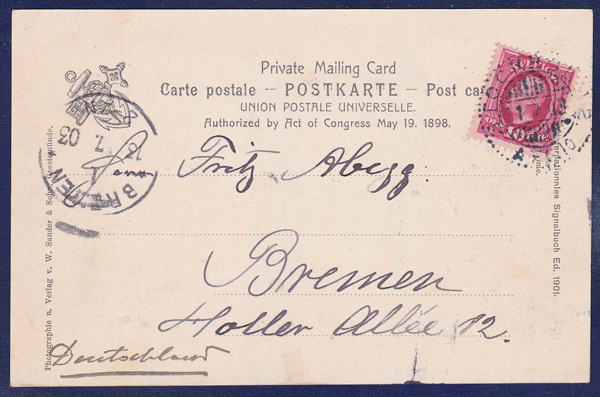 Private Mailing Card
Carte postale -- POSTKARTE -- Post car
UNION POSTALE UNIVERSELLE.
Authorized by Act of Congress May 19. 1898.
BREMEN
7 03
Fritz Abegg.
Bremen
Holler Allée 12.
Deutschland
Photographie u. Verlag v. W. Sander & Sohn
Internationales Signalbuch Ed. 1901.